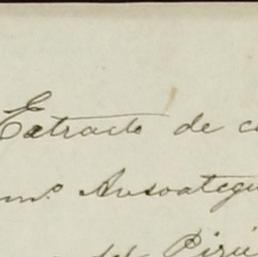 Extracto de c
m.º Ausoategu
del Pirú